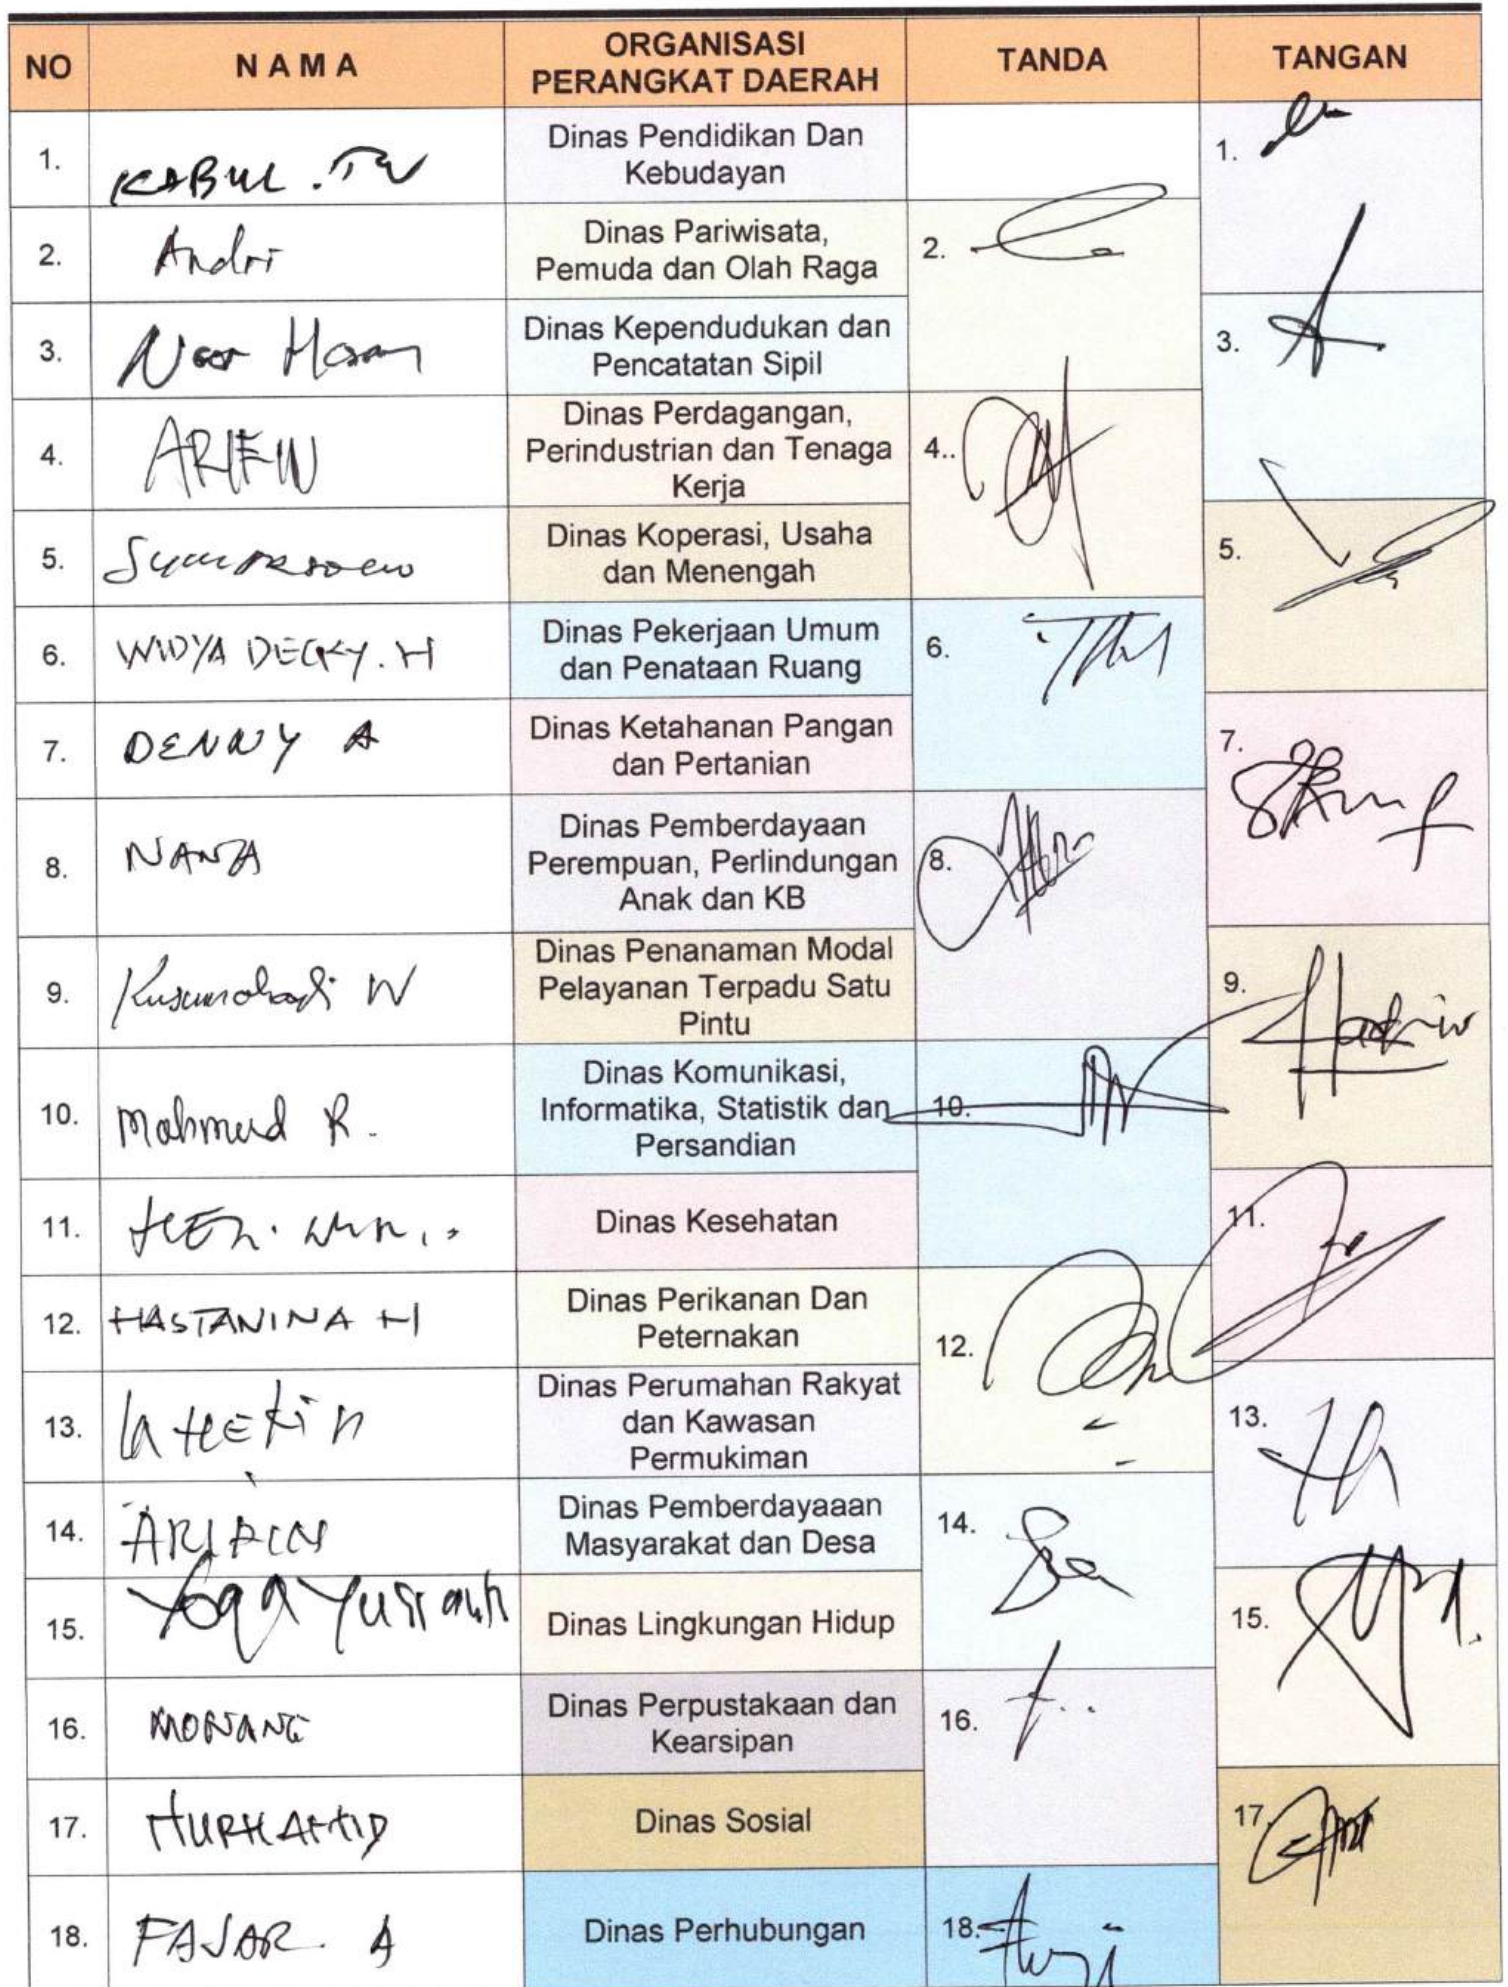 NO
NAMA
ORGANISASI
PERANGKAT DAERAH
TANDA
TANGAN
1.
KABUL . TW
Dinas Pendidikan Dan
Kebudayan
1.
2.
Andri
Dinas Pariwisata,
Pemuda dan Olah Raga
2.
3.
Noor Hasan
Dinas Kependudukan dan
Pencatatan Sipil
3.
4.
Dinas Perdagangan,
Perindustrian dan Tenaga
Kerja
4..
5.
Dinas Koperasi, Usaha
dan Menengah
5.
6.
WIDYA DECKY. H
Dinas Pekerjaan Umum
dan Penataan Ruang
6.
7.
DENNY A
Dinas Ketahanan Pangan
dan Pertanian
7.
8.
NANA
Dinas Pemberdayaan
Perempuan, Perlindungan
Anak dan KB
8.
9.
Kusumohadi W
Dinas Penanaman Modal
Pelayanan Terpadu Satu
Pintu
9.
10.
Mahmud R.
Dinas Komunikasi,
Informatika, Statistik dan
Persandian
10.
11.
Dinas Kesehatan
11.
12.
HASTANINA H
Dinas Perikanan Dan
Peternakan
12.
13.
Dinas Perumahan Rakyat
dan Kawasan
Permukiman
13.
14.
ARIPIN
Dinas Pemberdayaaan
Masyarakat dan Desa
14.
15.
Yoga
Dinas Lingkungan Hidup
15.
16.
MONANG
Dinas Perpustakaan dan
Kearsipan
16.
17.
NURHAMID
Dinas Sosial
17.
18.
FAJAR A
Dinas Perhubungan
18.